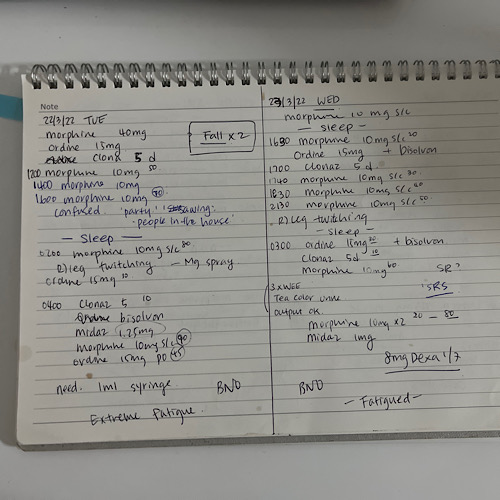 Note
22/3/22 TUE
morphine 40mg
Ordine 15mg
Fall x 2
Clona 5 d
1200 morphine 10mg 50
1400 morphine 10mg
1600 morphine 10mg 70
confused. 'party' sawing
'people in the house'
— Sleep —
0200 morphine 10mg s/c 80
R) leg twitching — Mg spray
Ordine 15mg 10
0400 Clonaz 5 10
bisolvon
Midaz 1.25mg
Morphine 10mg s/c 90
Ordine 15mg PO 45
need. 1ml syringe BNO
Extreme Fatigue.
23/3/22 WED
morphine 10 mg s/c
— Sleep —
1630 morphine 10mg s/c 20
Ordine 15mg + Bisolvon
1700 Clonaz 5 d
1740 morphine 10mg s/c 30
1830 morphine 10mg s/c 40
2130 morphine 10mg s/c 50
R) leg twitching
— Sleep —
0300 Ordine 15mg 30 + bisolvon
Clonaz 5d 10
Morphine 10mg 60 SR?
3 x WEE 'SRS
Tea color urine
Output ok
Morphine 10mg x2 20 — 80
Midaz 1mg
8mg Dexa 1/7
BNO
— Fatigued —